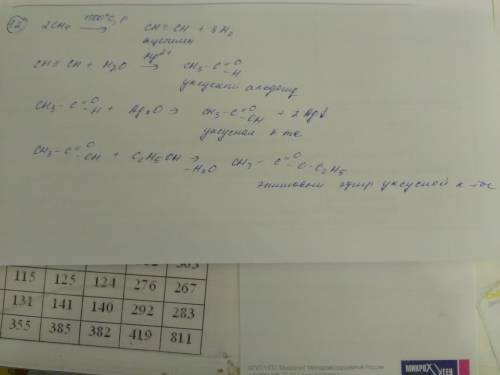 2CH₄ 1500°C, P → CH≡CH + 3H₂
ацетилен
CH≡CH + H₂O Hg²⁺ → CH₃-C=O-H
уксусный альдегид
CH₃-C=O-H + Ag₂O → CH₃-C=O-OH + 2Ag↓
уксусная к-та
CH₃-C=O-OH + C₂H₅OH → -H₂O CH₃-C=O-O-C₂H₅
этиловый эфир уксусной к-ты
115 125 124 276 267
131 141 140 292 283
355 385 382 419 811
МИКРО
ГЕН